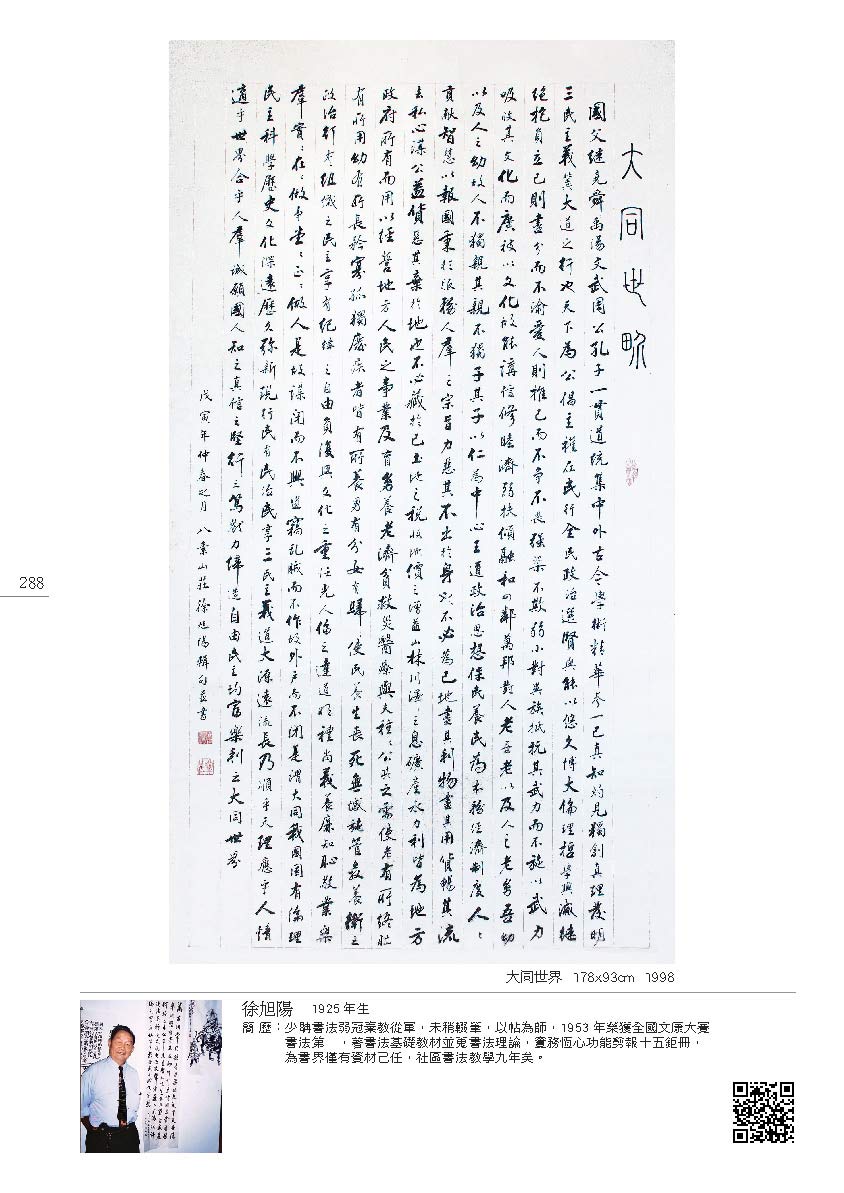 大同世界
國父繼堯舜禹湯文武周公孔子一貫道統集中外古今學術精華參一己真知灼見獨創真理發明
三民主義冀大道之行也天下為公倡主權在民行全民政治選賢與能以悠久博大倫理哲學興滅繼
絕抱負立己則盡分而不渝愛人則推己而不爭不畏強梁不欺弱小對異族抵抗其武力而不施以武力
吸收其文化而廣被以文化故能講信修睦濟弱扶傾融和四鄰萬邦對人老吾老以及人之老幼吾幼
以及人之幼故人不獨親其親不獨子其子以仁為中心王道政治思想保民養民為本務經濟制度人々
貢獻智慧以報國秉於服務人群之宗旨力惡其不出於身則不必為己地盡其利物盡其用貨暢其流
去私心謀公益貨惡其棄於地也不必藏於己土地之稅收地價之增益山林川澤之息礦產水力利皆為地方
政府所有而用以經營地方人民之事業及育幼養老濟貧救災醫療與夫種々公共之需使老有所終壯
有所用幼有所長矜寡孤獨廢疾者皆有所養男有分女有歸使民養生喪死無憾施管教養衛之
政治行有組織之民主享有紀律之自由負復興文化之重任光人倫之達道明禮尚義養廉知恥敬業樂
羣實々在々做事堂々正々做人是故謀閉而不興盜竊亂賊而不作故外戶而不閉是謂大同我國固有倫理
民主科學歷史文化深遠歷久彌新現行民有民治民享三民主義道大源遠流長乃順乎天理應乎人情
適乎世界合乎人群誠願國人知之真信之堅行之篤獻力締造自由民主均富樂利之大同世界
戊寅年仲春之月 八業山莊徐旭陽輯句並書
288
大同世界 178x93cm 1998
徐旭陽 1925年生
簡 歷：少聃書法弱冠棄教從軍，未稍輟筆，以帖為師，1953年榮獲全國文康大賽
書法第 ，著書法基礎教材並蒐書法理論，實務恆心功能剪報十五鉅冊，
為書界僅有資材己任，社區書法教學九年矣。